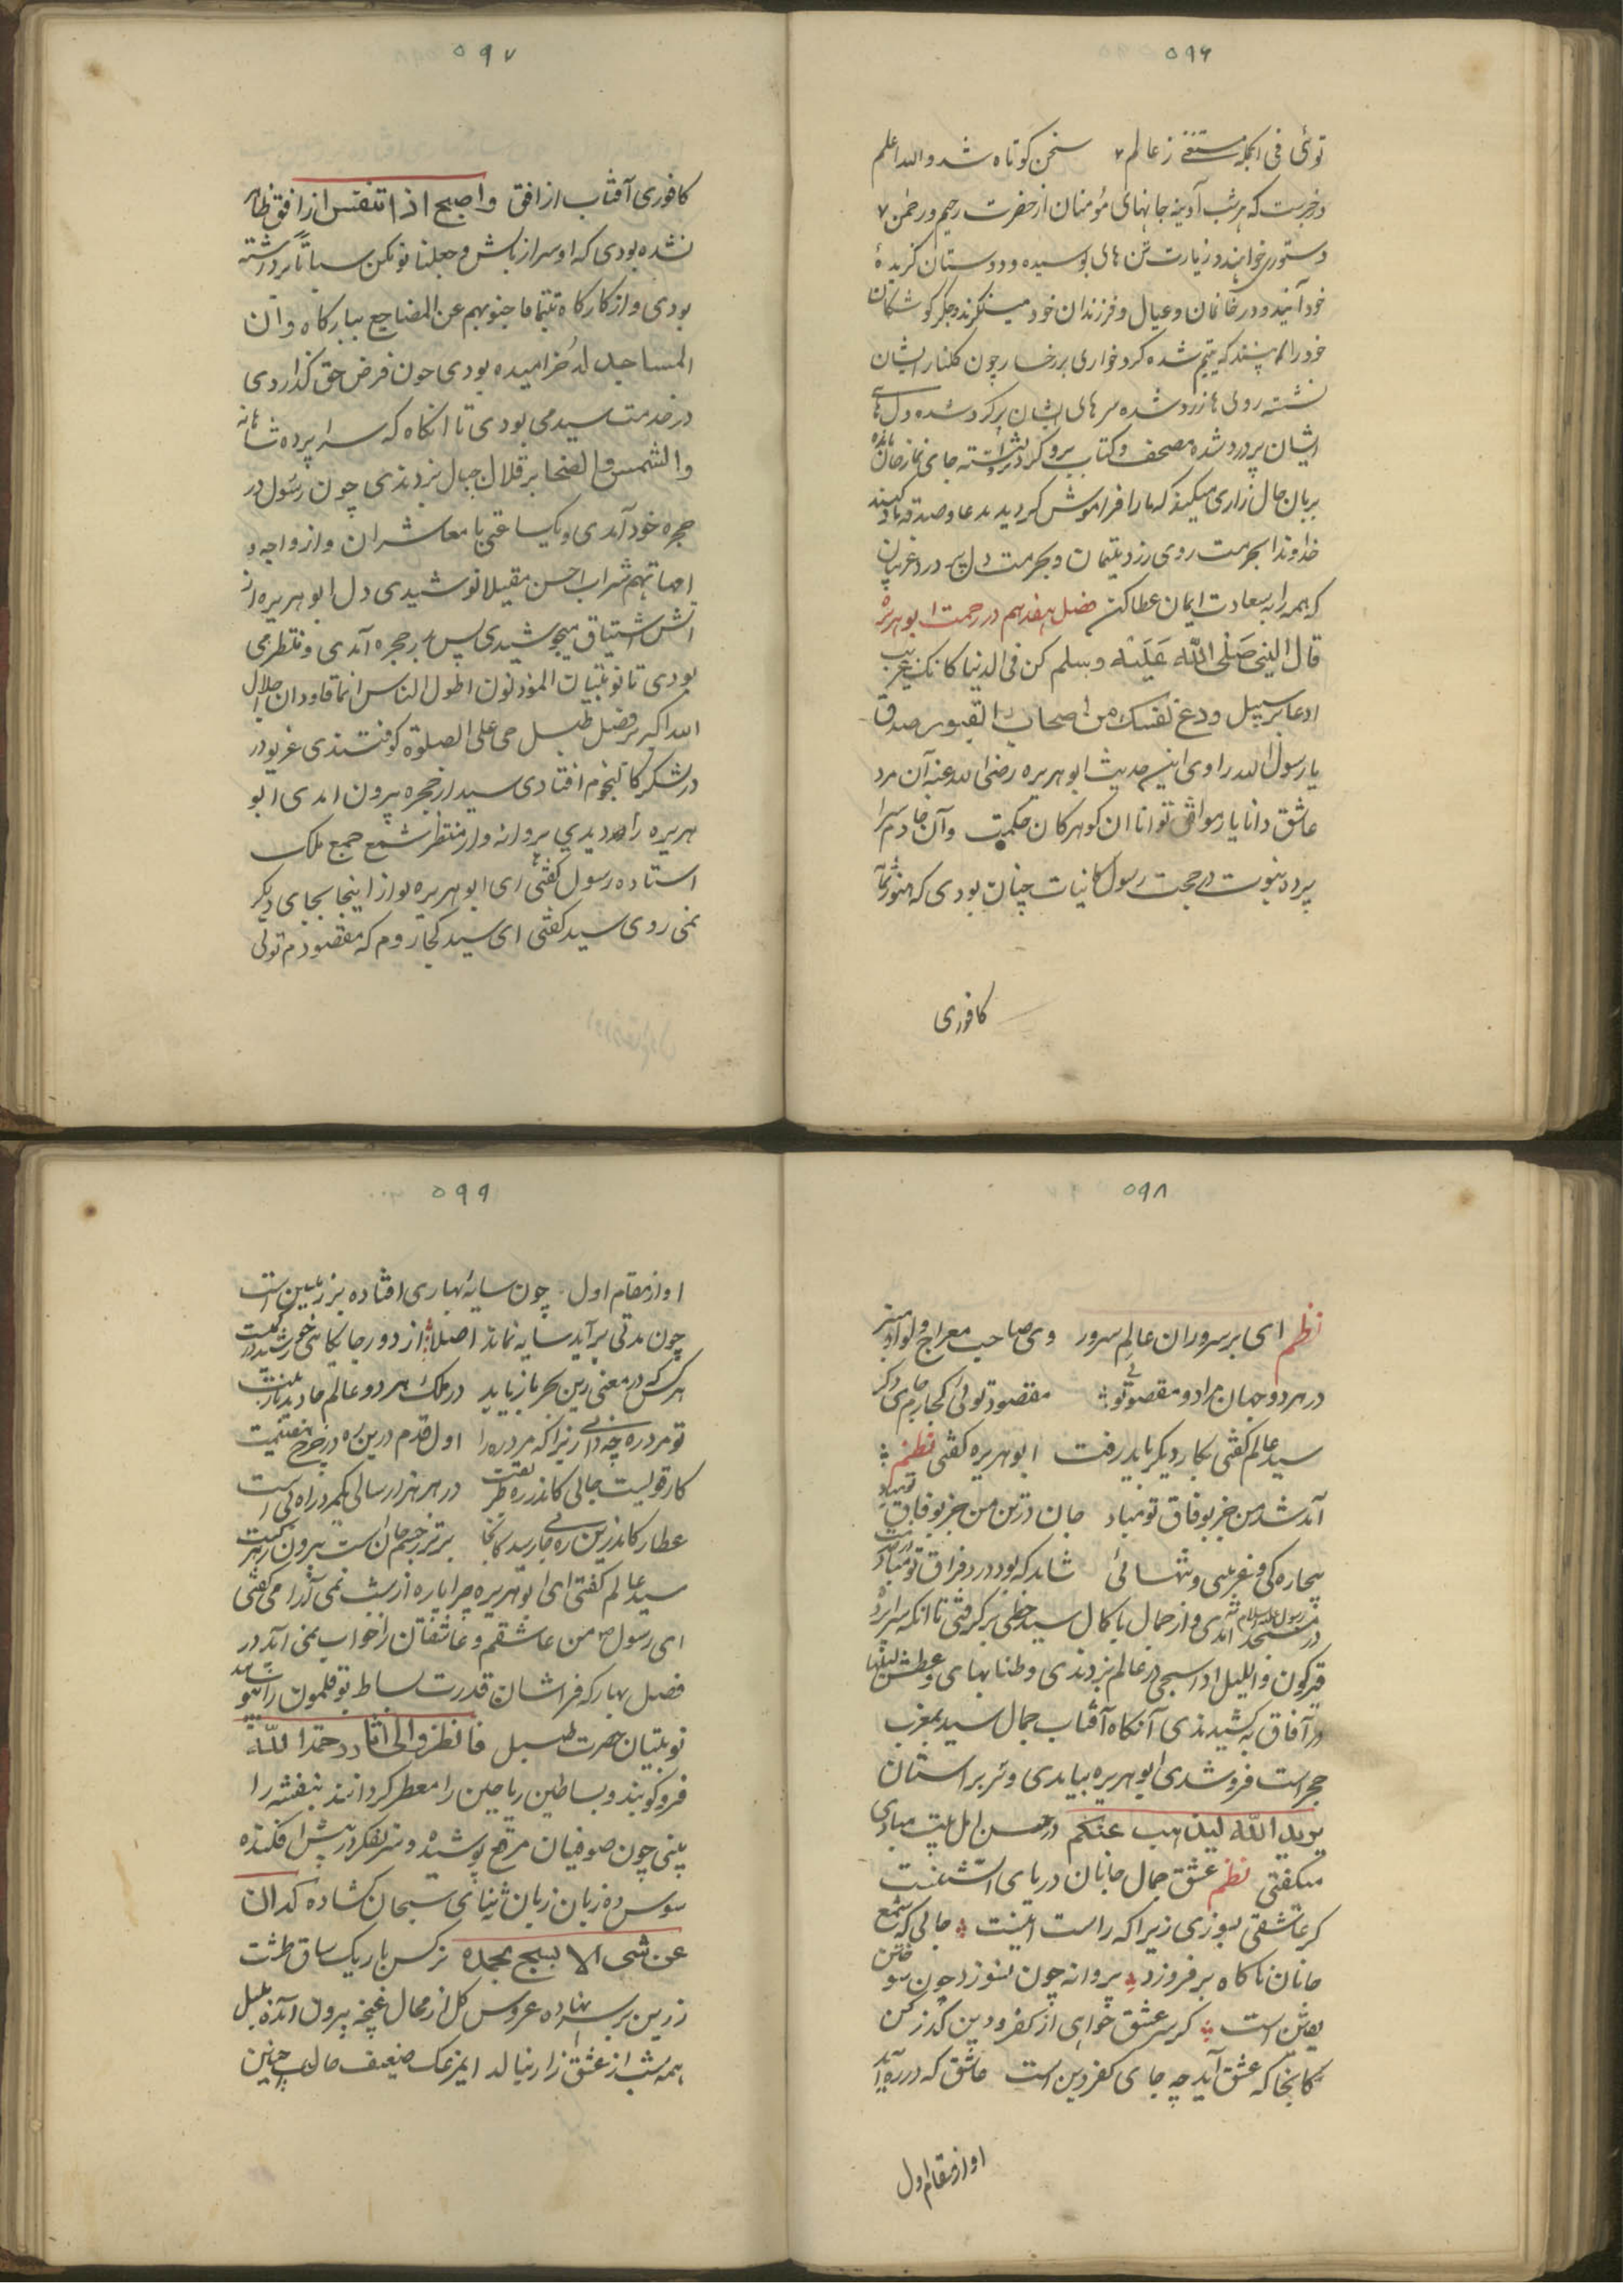 ۵۹۶
توئی فی الجمله مستغنی ز عالم سخن کوتاه شد والله اعلم
در خبرست که هر شب آدینه جانهای مؤمنان از حضرت رحیم و رحمن
دستوری خواهند و زیارت تن های بوسیده و دوستان گزیدهٔ
خود آیند و در خانمان و عیال و فرزندان خود مینگرند و جگر گوشگان
خود را همه بینند که یتیم شده گرد خواری بر رخسار چون گلنار ایشان
نشسته روی ها زرد شده سر های ایشان پر گرد شده دل های
ایشان پر درد شده مصحف و کتاب پر و گرد نشسته جای نماز خالی مانده
بزبان حال زاری میکنند که ما را فراموش کردید بدعا و صدقه یاد کنید
خداوندا بحرمت روی زرد یتیمان و بحرمت دل پر درد غریبان
که همه را به سعادت ایمان عطا کن فصل هفدهم در رحمت ابو هریره
قال النبی صَلّی اللّه عَلَیْه وسلم کن فی الدنیا کانک غریب
او عابر سبیل ودع نفسک من اصحاب القبور صدق
یا رسول الله راوی این حدیث ابو هریره رضی الله عنه آن مرد
عاشق دانا یار موافق توانا ان گوهر کان حکمت و آن خادم سرا
پرده نبوت در حجت رسول کائنات چنان بودی که هنوز
کافوری
۵۹۷
کافوری آفتاب از افق واصبح اذا تنفس از افق ظاهر
نشده بودی که او سر از بالش وجعلنا نومکم سباتاً برداشته
بودی و از کارگاه تتجافا جنوبهم عن المضاجع ببارگاه وان
المساجد لله خرامیده بودی چون فرض حق گذاردی
در خدمت سید می بودی تا انگاه که سراپرده شاهانه
والشمس والضحا بر قلال جبال بزدندی چون رسول در
حجره خود آمدی و یکساعتی با معاشران وازواجه
امهاتهم شراب احسن مقیلا نوشیدی دل ابو هریره از
آتش اشتیاق میجوشیدی پس بر در حجره آمدی و منتظر می
بودی تا نوبتیان المؤذنون اطول الناس اعناقا ودان جلال
الله اکبر بر فضل طبل حی علی الصلوة کوفتندی غریو در
در لشکر کالنجوم افتادی سید از حجره بیرون امدی ابو
هریره را دیدی پروانه وار منتظر شمع جمع ملک
استاده رسول گفتی ای ابو هریره تو از اینجا بجای دیگر
نمی روی سید گفتی ای سید کجا روم که مقصودم توئی
۵۹۸
نظم ای بر سروران عالم سرور وی صاحب معراج و لوا و منبر
در هر دو جهان مراد و مقصود توئی مقصود توئی کجا روم جای دگر
سید عالم گفتی بکار دیگر باید رفت ابو هریره گفتی نظم
آمد شد من جز بوفاق تو مباد جان در تن من جز بوفاق تو مباد
بیچاره کی و غریبی و تنهائی شاید که بود درد فراق تو مباد
در مسجد رسول علیه السلام آمدی و از جمال با کمال سید حظی بر گرفتی تا انکه سراپرده
قیرگون واللیل اذا سجی در عالم بزدندی و طنابهای واغطش لیلها
در آفاق به کشیدندی آنگاه آفتاب جمال سید بمغرب
حجرات فرو شدی ابو هریره بیامدی و سر بر استان
یرید اللّه لیذهب عنکم الرجس اهل البیت نهادی
میگفتی نظم عشق جمال جانان دریای آتشینست
گر عاشقی بسوزی زیرا که راست اینست جائی که شمع
جانان ناگاه بر فروزد پروانه چون نسوزد چون سوختن
یقین است گر سر عشق خواهی از کفر و دین گذر کن
کانجا که عشق آید چه جای کفر و دین است عاشق که در ره آید
او از مقام اول
۵۹۹
او از مقام اول چون سایهٔ بهاری افتاده بر زمین است
چون مدتی بر آید سایه نماند اصلا از دور جایگاهی خورشید در کمین است
هر کس که در معنی زین بحر باز یابد در ملک هر دو عالم جاوید نازنین است
تو مرد ره چه دانی زیرا که مرد ره را اول قدم درین ره در چرخ هفتمین است
کار قویست جائی کاندر ره طریقت در هر هزار سالی یک مرد راه بین است
عطار کاندرین ره جائی رسید کانجا برتر ز جسم و جان است بیرون ز مهر و کین است
سید عالم گفتی ای ابو هریره چرا پاره از شب نمی آرامی گفتی
ای رسول من عاشقم و عاشقان را خواب نمی آید در
فصل بهار که فراشان قدرت بساط بوقلمون را
نوبتیان حضرت طبل فانظروا الی اثار رحمة اللّه
فرو کوبند و بساطین ریاحین را معطر گردانند بنفشه را
بینی چون صوفیان مرقع پوشیده و سر تفکر در پیش افکنده
سوسن ده زبان زبان ثنای سبحان کشاده که ان
من شی الا یسبح بحمده نرگس باریک ساق طشت
زرین بر سر نهاده عروس گل از محال غنچه بیرون آمده بلبل
همه شب از عشق زار بنالد این مرغک ضعیف حال چنین